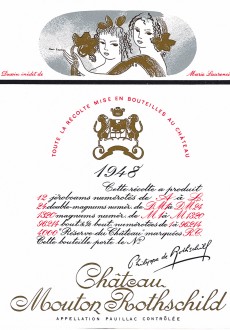 Dessin inédit de Marie Laurencin
TOUTE LA RÉCOLTE MISE EN BOUTEILLES AU CHÂTEAU
1948
Cette récolte a produit
12 jéroboams numérotés de A à L
24 double-magnums numér. de
1320 magnums numér. de M 1 à M 1320
4000 Réserve du Château marquées R.C.
Cette bouteille porte le N°
Philippe de Rothschild
Château
Mouton Rothschild
APPELLATION PAUILLAC CONTRÔLÉE